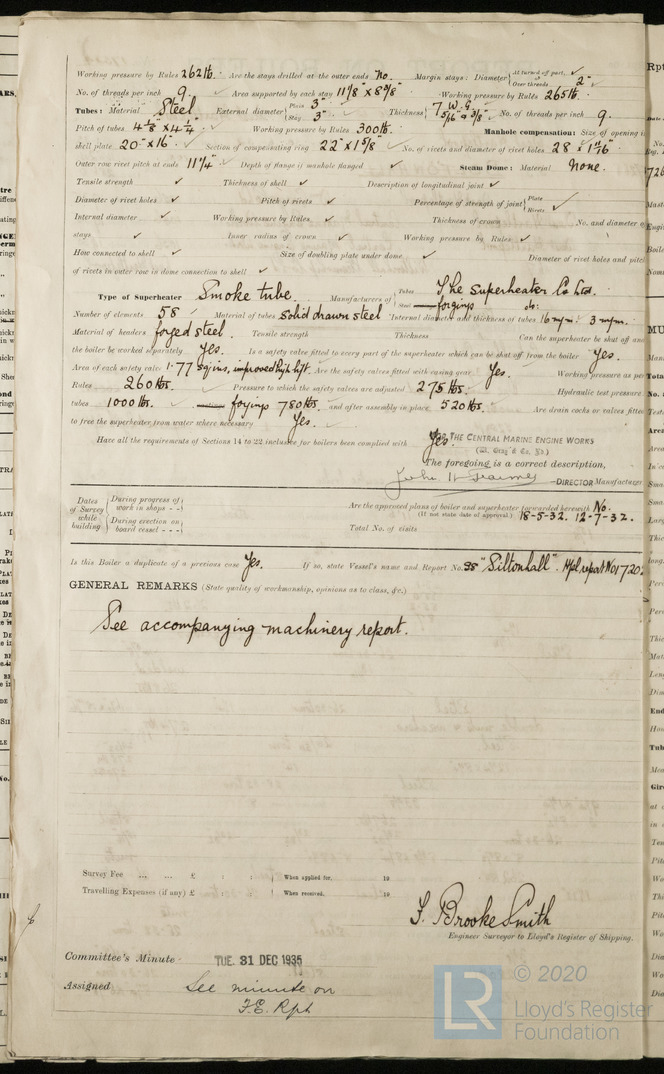 Working pressure by Rules 262 lb. Are the stays drilled at the outer ends No. Margin stays: Diameter { At turned off part, ✓ Over threads 2"
No. of threads per inch 9. ✓ Area supported by each stay 11⅛" x 8⅝" Working pressure by Rules 265 lb.
Tubes: Material Steel External diameter { Plain 3" Stay 3" Thickness { 7 W.G. 5/16" & 3/8" No. of threads per inch 9.
Pitch of tubes 4⅛" x 4¼" Working pressure by Rules 300 lb. Manhole compensation: Size of opening i
shell plate 20" x 16" Section of compensating ring 22" x 1⅝" No. of rivets and diameter of rivet holes 28
Outer row rivet pitch at ends 11¼" Depth of flange if manhole flanged ✓ Steam Dome: Material None.
Tensile strength ✓ Thickness of shell ✓ Description of longitudinal joint ✓
Diameter of rivet holes ✓ Pitch of rivets ✓ Percentage of strength of joint { Plate Rivets ✓
Internal diameter ✓ Working pressure by Rules ✓ Thickness of crown No. and diameter o
stays ✓ Inner radius of crown ✓ Working pressure by Rules ✓
How connected to shell ✓ Size of doubling plate under dome ✓ Diameter of rivet holes and pitc
of rivets in outer row in dome connection to shell ✓
Type of Superheater Smoke tube. Manufacturers of { Tubes The Superheater Co Ltd. Steel forgings do.
Number of elements 58 ✓ Material of tubes Solid drawn steel Internal diameter and thickness of tubes 16 m/m. 3 m/m.
Material of headers forged steel. Tensile strength Thickness Can the superheater be shut off and
the boiler be worked separately Yes. Is a safety valve fitted to every part of the superheater which can be shut off from the boiler Yes.
Area of each safety valve 1.77 sq ins, improved high lift. Are the safety valves fitted with easing gear Yes. Working pressure as per
Rules 260 lbs. Pressure to which the safety valves are adjusted 275 lbs. Hydraulic test pressure
tubes 1000 lbs. forgings 780 lbs. and after assembly in place 520 lbs. Are drain cocks or valves fitted
to free the superheater from water where necessary Yes.
Have all the requirements of Sections 14 to 22 inclusive for boilers been complied with Yes
FOR THE CENTRAL MARINE ENGINE WORKS
(Wm. Gray & Co. Ld)
The foregoing is a correct description,
DIRECTOR Manufacturer
Dates of Survey while building { During progress of work in shops - - Are the approved plans of boiler and superheater forwarded herewith No.
(If not state date of approval.) 18-5-32. 12-7-32.
During erection on board vessel - - - Total No. of visits
Is this Boiler a duplicate of a previous case Yes. If so, state Vessel's name and Report No. SS "Siltonhall". Hpl report No 1720
GENERAL REMARKS (State quality of workmanship, opinions as to class, &c.)
See accompanying machinery report.
Survey Fee ... ... £ : : When applied for, 19
Travelling Expenses (if any) £ : : When received, 19
F. Brooke Smith
Engineer Surveyor to Lloyd's Register of Shipping.
Committee's Minute TUE. 31 DEC 1935
Assigned See minute on
F.E. Rpt
LR © 2020
Lloyd's Register
Foundation